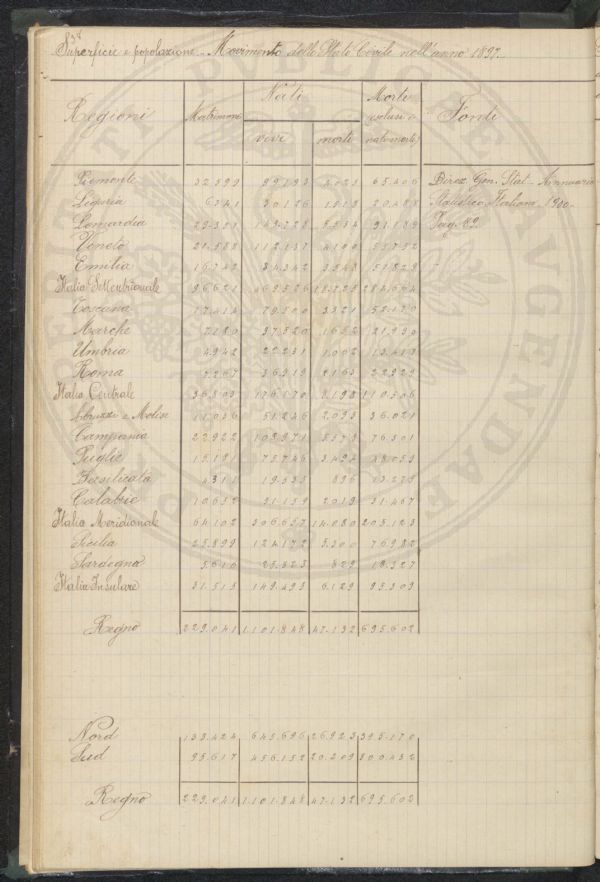 38
Superficie e popolazione - Movimento dello Stato Civile nell'anno 1897.
Regioni Matrimoni Nati Morti esclusi i nati-morti Fonti
vivi morti
Piemonte 22.599 99.193 65.406 Direz. Gen. Stat. - Annuario
Liguria 6.341 30.126 20.488 Statistico Italiano 1900.
Lombardia 29.351 143.728 91.189 Pag. 82.
Veneto 21.588 112.137 4.100 55.752
Emilia 16.742 84.342 3.543 51.829
Italia Settentrionale 96.621 469.526 18.725 284.664
Toscana 17.414 79.800 3.321 52.170
Marche 7.180 37.820 1.652 21.990
Umbria 4.942 22.231 1.062 13.417
Roma 7.267 36.319 2.163 22.929
Italia Centrale 36.803 176.170 8.198 110.506
Abruzzi e Molise 11.046 51.246 2.098 36.021
Campania 22.922 108.971 5.573 76.301
Puglie 15.191 75.746 3.494 48.059
Basilicata 4.311 19.535 896 13.275
Calabrie 10.632 51.159 2.019 31.467
Italia Meridionale 64.102 306.657 14.080 205.123
Sicilia 25.899 124.172 5.300 76.982
Sardegna 5.616 25.323 829 18.327
Italia Insulare 31.515 149.495 6.129 95.309
Regno 229.041 1.101.848 47.132 695.602
Nord 133.424 645.696 26.923 395.170
Sud 95.617 456.152 20.209 300.432
Regno 229.041 1.101.848 47.132 695.602